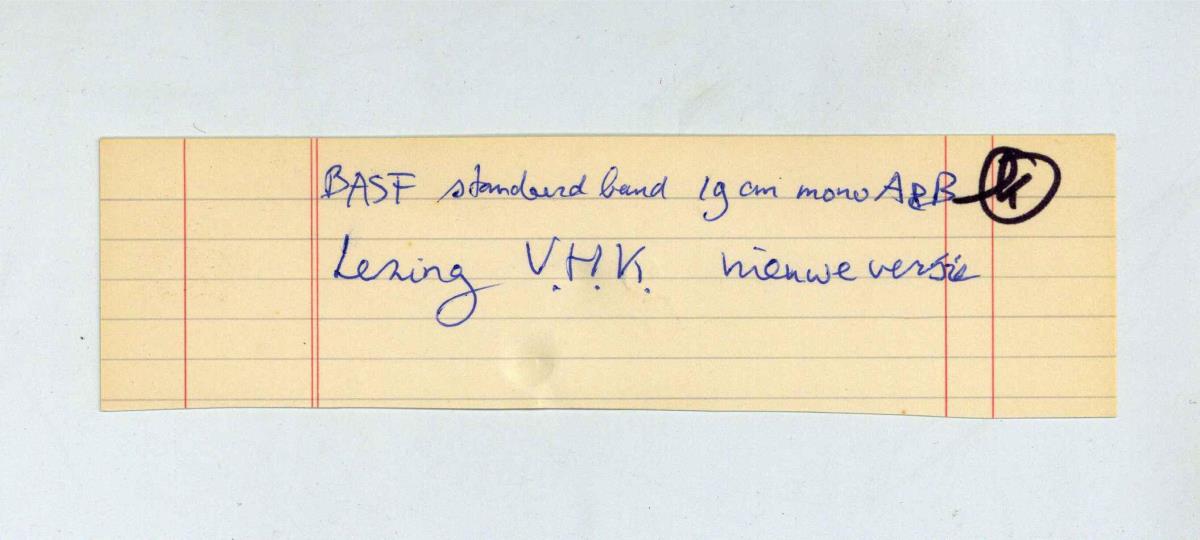 BASF standaard band 19 cm mono A&B
Lezing V.H.K. nieuwe versie